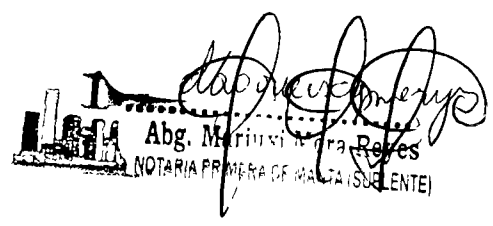 Abg. Mariuxi Mora Reyes
NOTARIA PRIMERA DE MANTA (SUPLENTE)